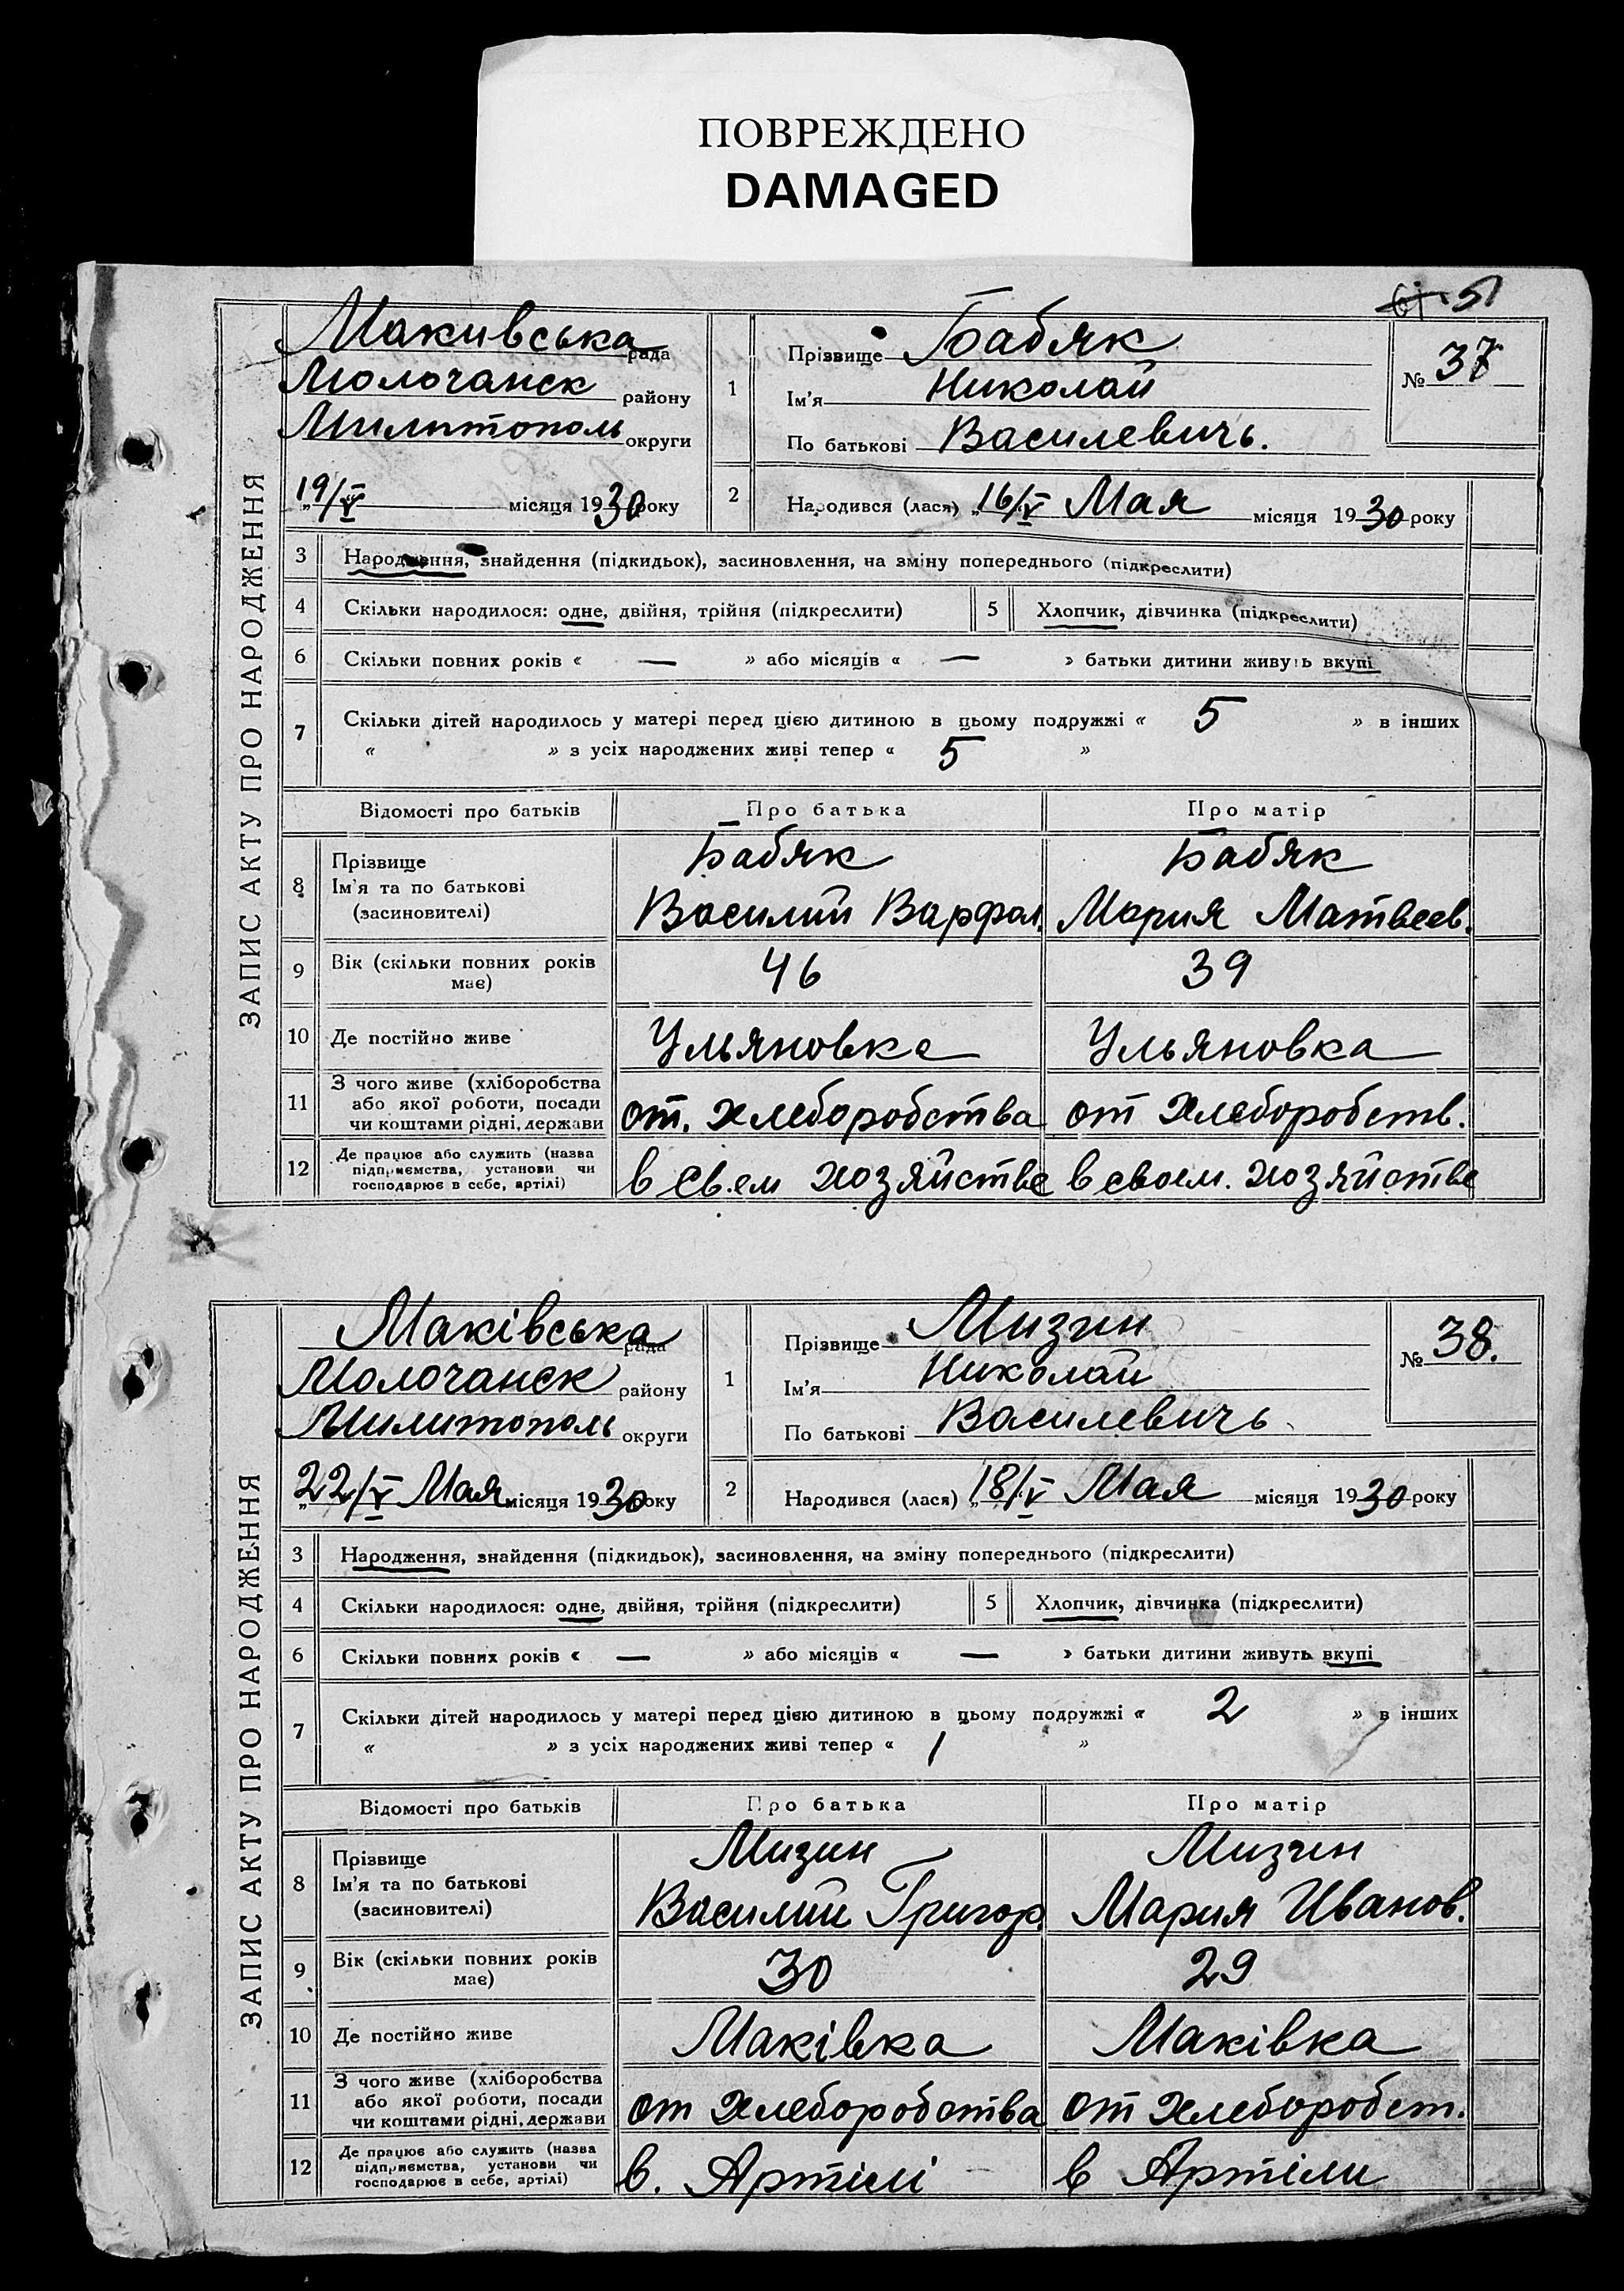 ПОВРЕЖДЕНО
DAMAGED
51
ЗАПИС АКТУ ПРО НАРОДЖЕННЯ
Макивська рада
Молочанск району
Милитополь округи
„19/V місяця 1930 року
1
Прізвище Бабяк
Ім'я Николай
По батькові Василевичь.
№ 37
2
Народився (лася) „16/V Мая місяця 1930 року
3 Народження, знайдення (підкидьок), засиновлення, на зміну попереднього (підкреслити)
4 Скільки народилося: одне, двійня, трійня (підкреслити) 5 Хлопчик, дівчинка (підкреслити)
6 Скільки повних років « — » або місяців « — » батьки дитини живуть вкупі
7 Скільки дітей народилось у матері перед цією дитиною в цьому подружжі « 5 » в інших
« » з усіх народжених живі тепер « 5 »
Відомості про батьків Про батька Про матір
8 Прізвище Бабяк Бабяк
Ім'я та по батькові
(засиновителі) Василий Варфол. Мария Матвеев.
9 Вік (скільки повних років має) 46 39
10 Де постійно живе Ульяновка Ульяновка
11 З чого живе (хліборобства
або якої роботи, посади
чи коштами рідні, держави от. хлеборобства от хлеборобств.
12 Де працює або служить (назва
підприємства, установи чи
господарює в себе, артілі) в св.ем хозяйстве в своем. хозяйстве
ЗАПИС АКТУ ПРО НАРОДЖЕННЯ
Маківська рада
Молочанск району
Милитополь округи
„22/V Мая місяця 1930 року
1
Прізвище Мизин
Ім'я Николай
По батькові Василевичь
№ 38.
2
Народився (лася) „18/V Мая місяця 1930 року
3 Народження, знайдення (підкидьок), засиновлення, на зміну попереднього (підкреслити)
4 Скільки народилося: одне, двійня, трійня (підкреслити) 5 Хлопчик, дівчинка (підкреслити)
6 Скільки повних років « — » або місяців « — » батьки дитини живуть вкупі
7 Скільки дітей народилось у матері перед цією дитиною в цьому подружжі « 2 » в інших
« » з усіх народжених живі тепер « 1 »
Відомості про батьків Про батька Про матір
8 Прізвище Мизин Мизин
Ім'я та по батькові
(засиновителі) Василий Григор. Мария Иванов.
9 Вік (скільки повних років має) 30 29
10 Де постійно живе Маківка Маківка
11 З чого живе (хліборобства
або якої роботи, посади
чи коштами рідні, держави от хлеборобства от хлеборобст.
12 Де працює або служить (назва
підприємства, установи чи
господарює в себе, артілі) в. Артілі в Артіли